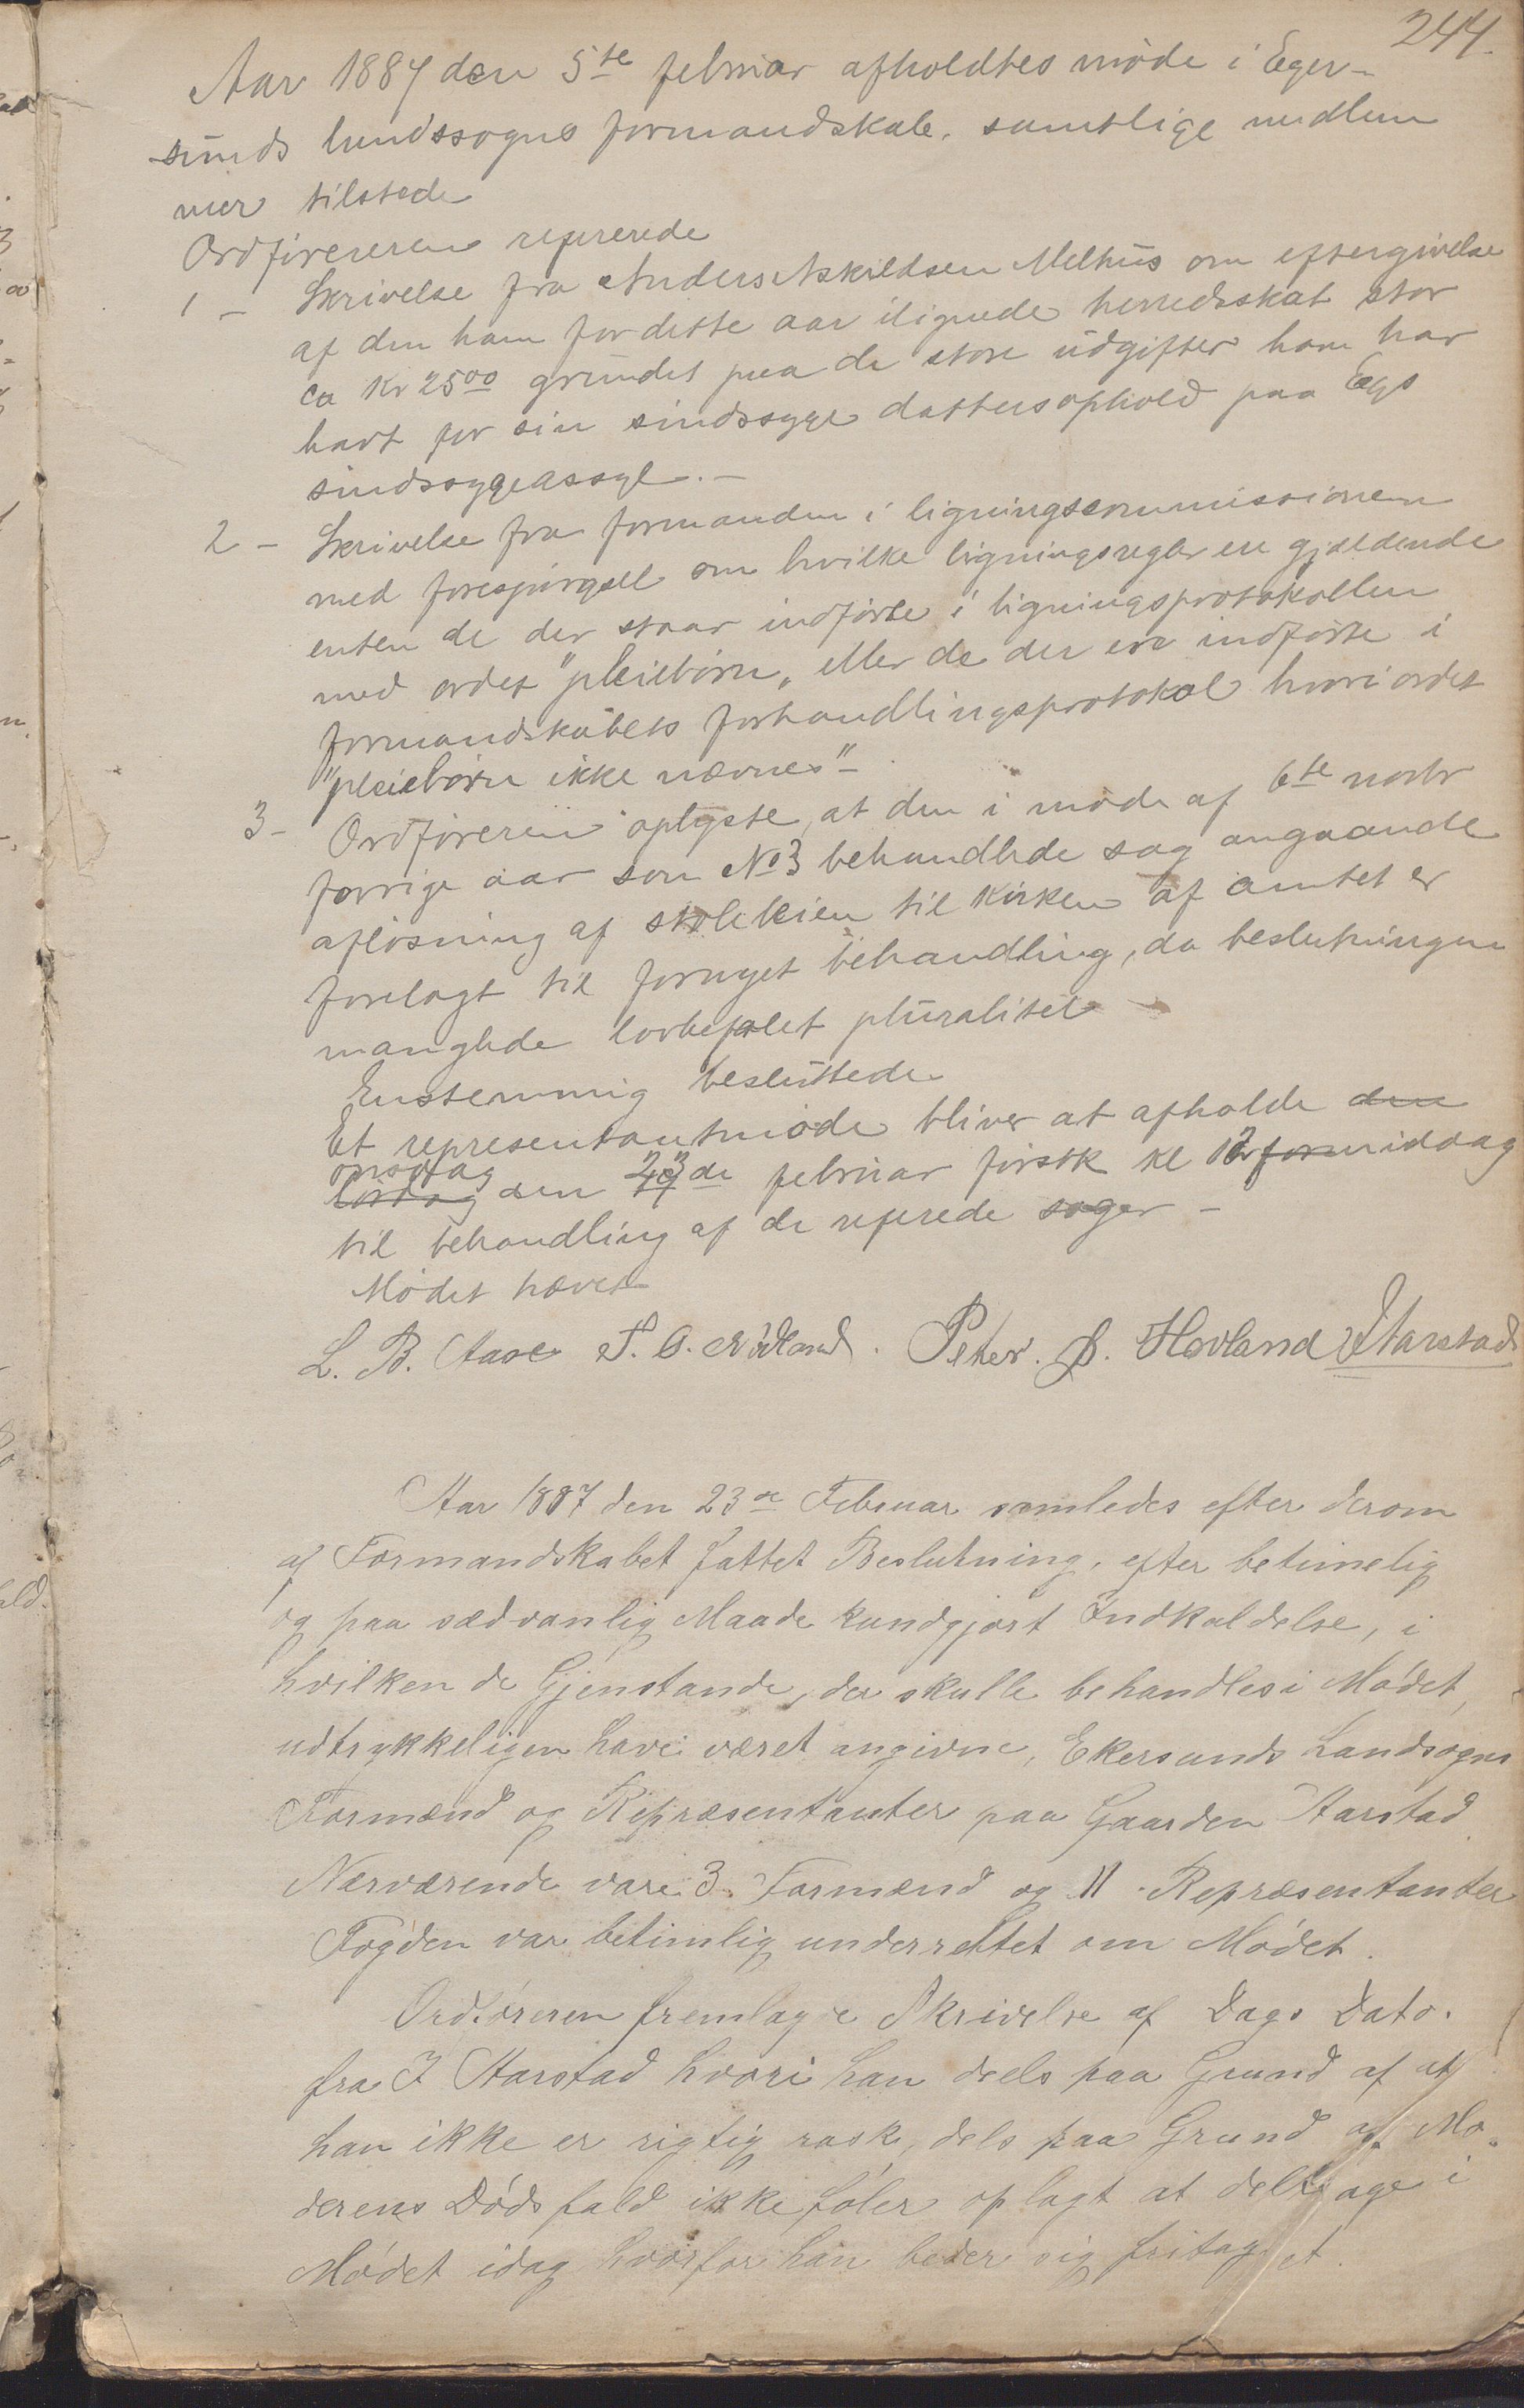 244.
Aar 1887 den 5te februar afholdtes møde i Eger-
sunds landssogns formandskab. samtlige medlem
mer tilstede
Ordførereren refererede
1 - Skrivelse fra Anders Askildsen Melhus om eftergivelse
af den ham for dette aar ilignede herredsskat stor
ca Kr 25 00 grundet paa de store udgifter han har
havt for sin sindssyge dattersophold paa Egs
sindssygeassyl. -
2 - Skrivelse fra formanden i ligningscommissionen
med forespørgsel om hvilke ligningsregler ere gjældende
enten de der staar indførte i ligningsprotokollen
med ordet "pleiebørn„ eller de der ere indførte i
formandskabets forhandlingsprotokol hvori ordet
"pleiebørn ikke nævnes" -
3 - Ordføreren oplyste, at den i møde af 6te novbr
forrige aar som No 3 behandlede sag angaaende
afløsning af stolleien til Kirken af amtet er
forelagt til fornyet behandling, da beslutningen
manglede lovbefalet pluralitet
Enstemmig besluttede
Et representantmøde bliver at afholde den
onsdag
lørdag den 23de februar førstk kl 12 formiddag
til behandling af de referede sager -
Mødet hævet
L. B. Aase T. O. Mødland. Peter. S. Hovland J Aarstad
Aar 1887 den 23de Februar samledes efter derom
af Formandskabet fattet Beslutning, efter betimelig
og paa sædvanlig Maade kundgjort Indkaldelse, i
hvilken de Gjenstande, der skulle behandles i Mødet,
udtrykkeligen have været angivne, Ekersunds Landsogns
Formænd og Repræsentanter paa Gaarden Aarstad
Nærværende vare 3. Formænd og 11. Repræsentanter
Fogden var betimlig underrettet om Mødet.
Ordføreren fremlagde Skrivelse af Dags Dato.
fra J Aarstad hvori han deels paa Grund af at
han ikke er rigtig rask, dels paa Grund af Mo-
derens Dødsfald ikke føler oplagt at deltage i
Mødet idag hvorfor han beder sig fritaget.